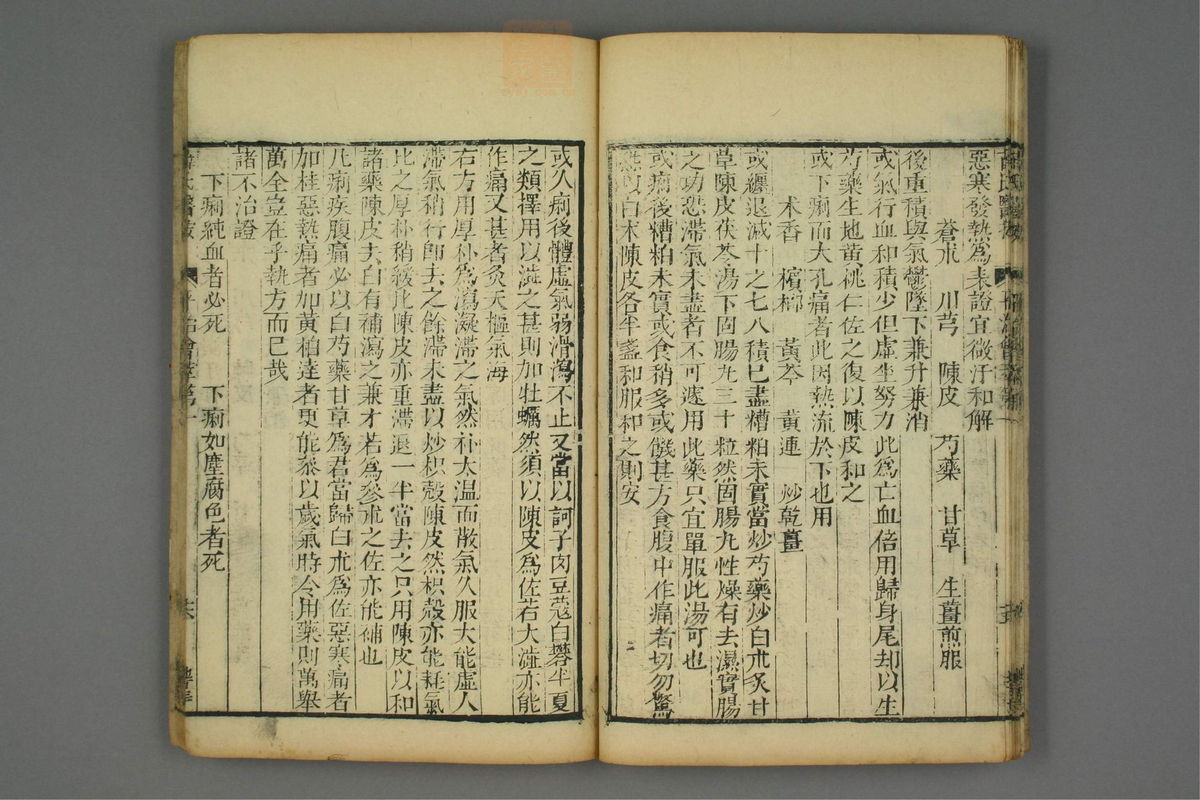 惡寒發熱爲表證宜微汗和解
蒼朮 川芎 陳皮 芍藥 甘草 生薑煎服
後重積與氣鬱墜下兼升兼消
或氣行血和積少但虛坐努力此爲亡血倍用歸身尾却以生
芍藥生地黃桃仁佐之復以陳皮和之
或下痢而大孔痛者此因熱流於下也用
木香 檳榔 黃芩 黃連 炒乾薑
或纏退減十之七八積已盡糟粕未實當炒芍藥炒白朮炙甘
草陳皮茯苓湯下固腸丸三十粒然固腸丸性燥有去濕實腸
之功恐滯氣未盡者不可遽用此藥只宜單服此湯可也
或痢後糟粕未實或食稍多或饑甚方食腹中作痛者切勿驚
以白朮陳皮各半盞和服和之則安
或久痢後體虛氣弱滑瀉不止又當以訶子肉豆蔻白礬半夏
之類擇用以澁之甚則加牡蠣然須以陳皮爲佐若大澁亦能
作痛又甚者灸天樞氣海
右方用厚朴爲瀉凝滯之氣然朴大温而散氣久服大能虛人
滯氣稍行卽去之餘滯未盡以炒枳殼陳皮然枳殼亦能耗氣
比之厚朴稍緩比陳皮亦重滯退一半當去之只用陳皮以和
諸藥陳皮去白有補瀉之兼才若爲參朮之佐亦能補也
凡痢疾腹痛必以白芍藥甘草爲君當歸白朮爲佐惡寒痛者
加桂惡熱痛者加黃栢達者更能叅以歲氣時令用藥則萬舉
萬全豈在乎執方而已哉
諸不治證
下痢純血者必死 下痢如塵腐色者死